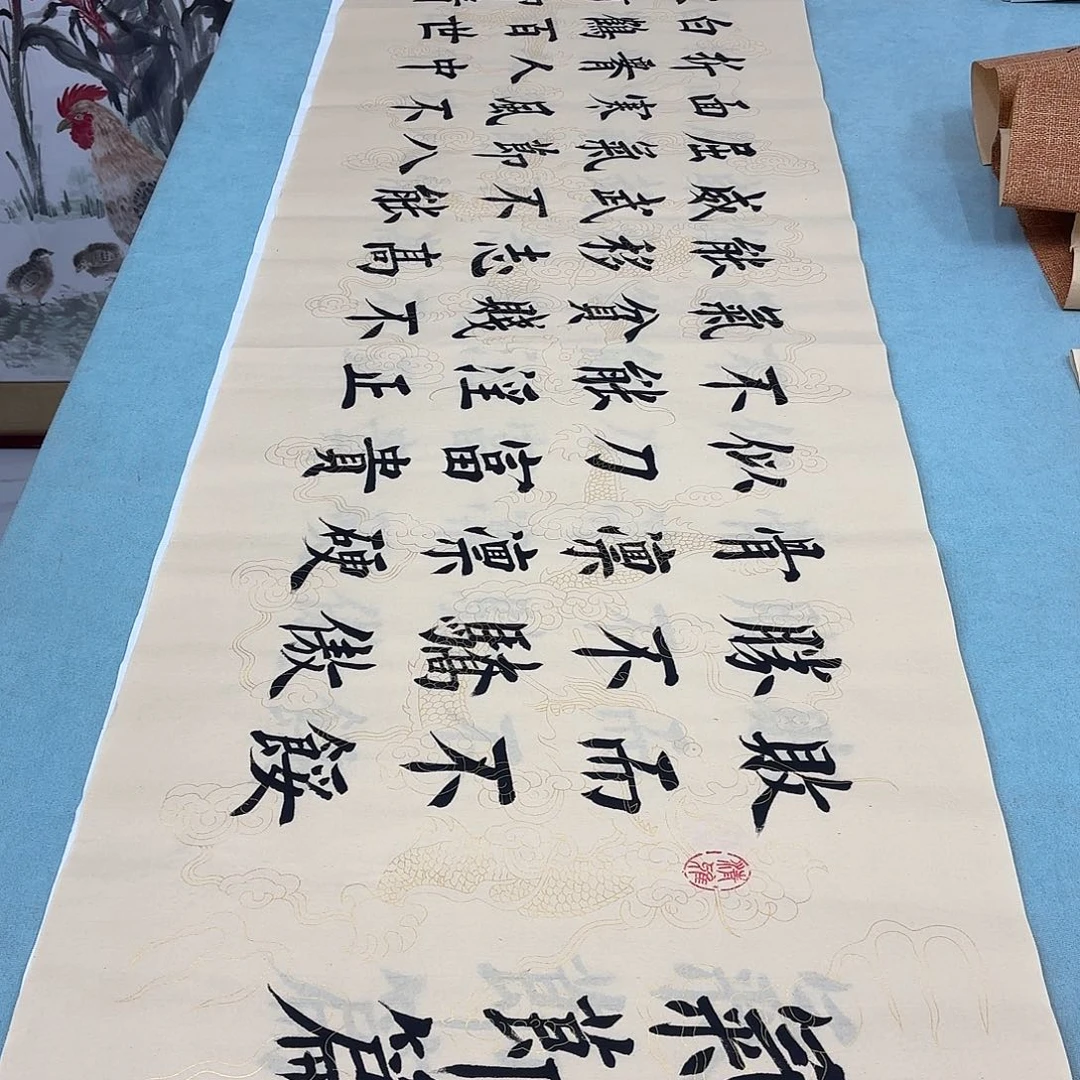 氣節篇
敗而不餒
勝不驕傲
骨凜凜硬
似刀富貴
不能淫正
氣貧賤不
能移志高
威武不能
屈氣節八
面寒風不
折脊人中
白鶴百世